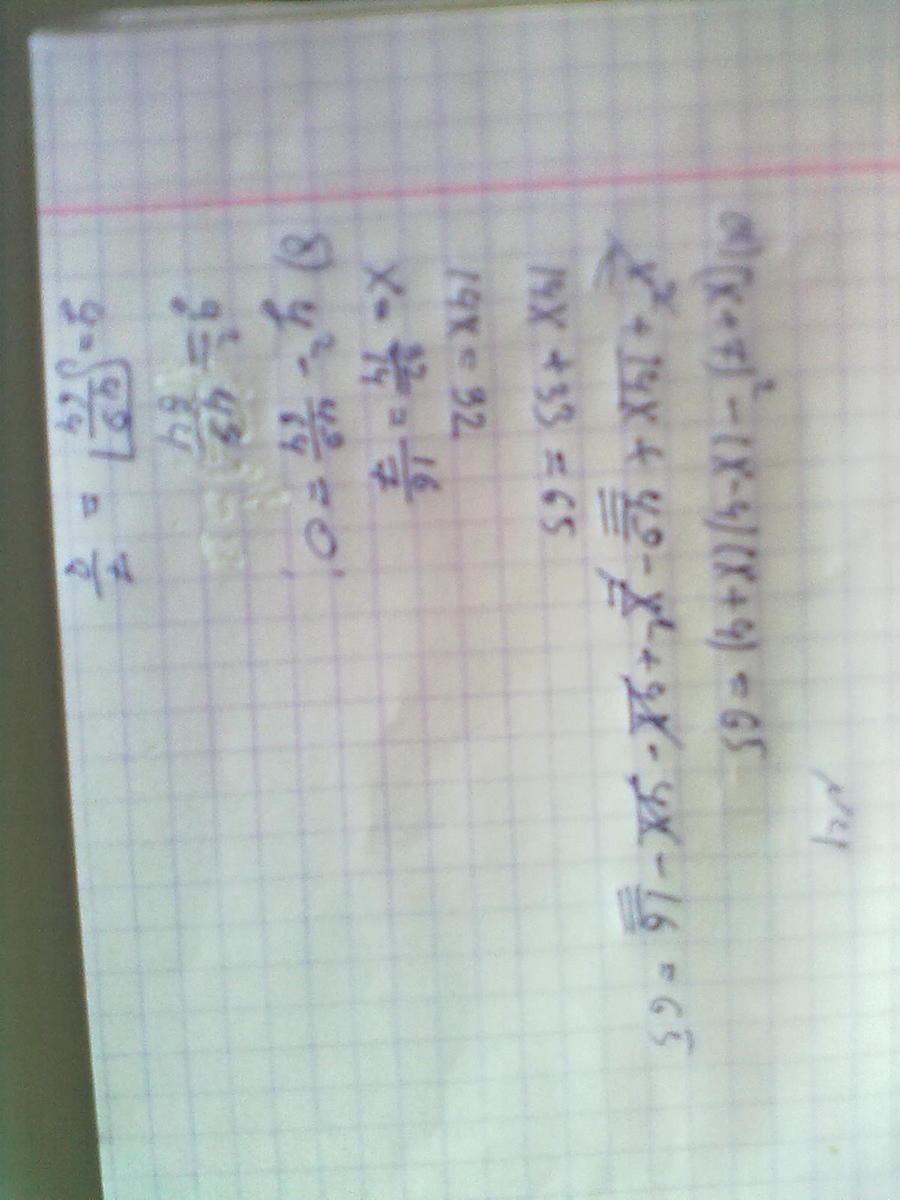 №4
а) (x+7)² - (x-4)(x+4) = 65
x² + 14x + 49 - x² + 4x - 4x - 16 = 65
14x + 33 = 65
14x = 32
x = 32/14 = 16/7
б) y² - 49/64 = 0
y² = 49/64
y = √49/64 = 7/8